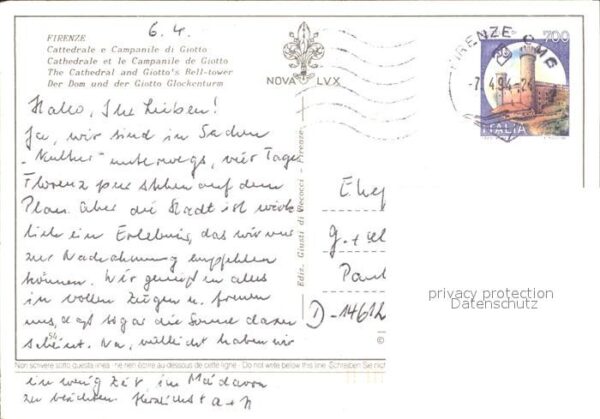 6.4.
FIRENZE
Cattedrale e Campanile di Giotto
Cathédrale et le Campanile de Giotto
The Cathedral and Giotto's Bell-tower
Der Dom und der Giotto Glockenturm
NOVA LVX
FIRENZE CMP
-7.4.94-24
700
ITALIA
Hallo, Ihr Lieben!
Ja, wir sind in Sachen
"Kultur" unterwegs, vier Tage
Florenz pur stehen auf dem
Plan. Aber die Stadt ist wirk-
lich ein Erlebnis, das wir nur
zur Nachahmung empfehlen
können. Wir genießen alles
in vollen Zügen u. freuen
uns, daß sogar die Sonne dazu
scheint. Na, vielleicht haben wir
ein wenig Zeit, in
zu berichten. Herzlichst a + n
Ediz. Giusti di Becocci - Firenze
Ehep
g. +
Paul
D-14612
privacy protection
Datenschutz
54
©
Non scrivere sotto questa linea - ne rien écrire au-dessous de cette ligne - Do not write below this line - Schreiben Sie nicht